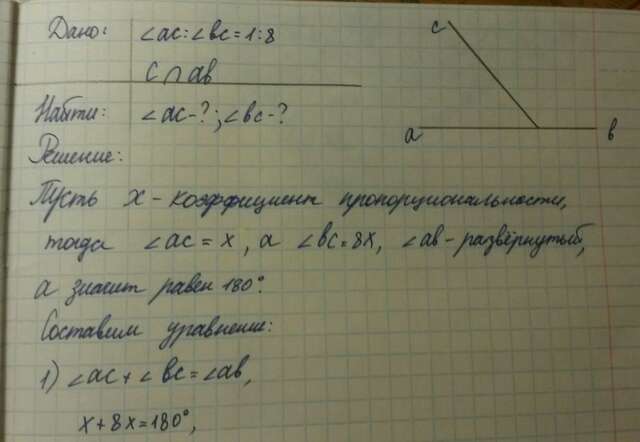 Дано: ∠ac:∠bc=1:8
c∩ab
Найти: ∠ac-?; ∠bc-?
Решение:
Пусть x - коэффициент пропорциональности,
тогда ∠ac = x, а ∠bc=8x, ∠ab - развёрнутый,
а значит равен 180°.
Составим уравнение:
1) ∠ac+∠bc=∠ab,
x+8x=180°,
c
a
b